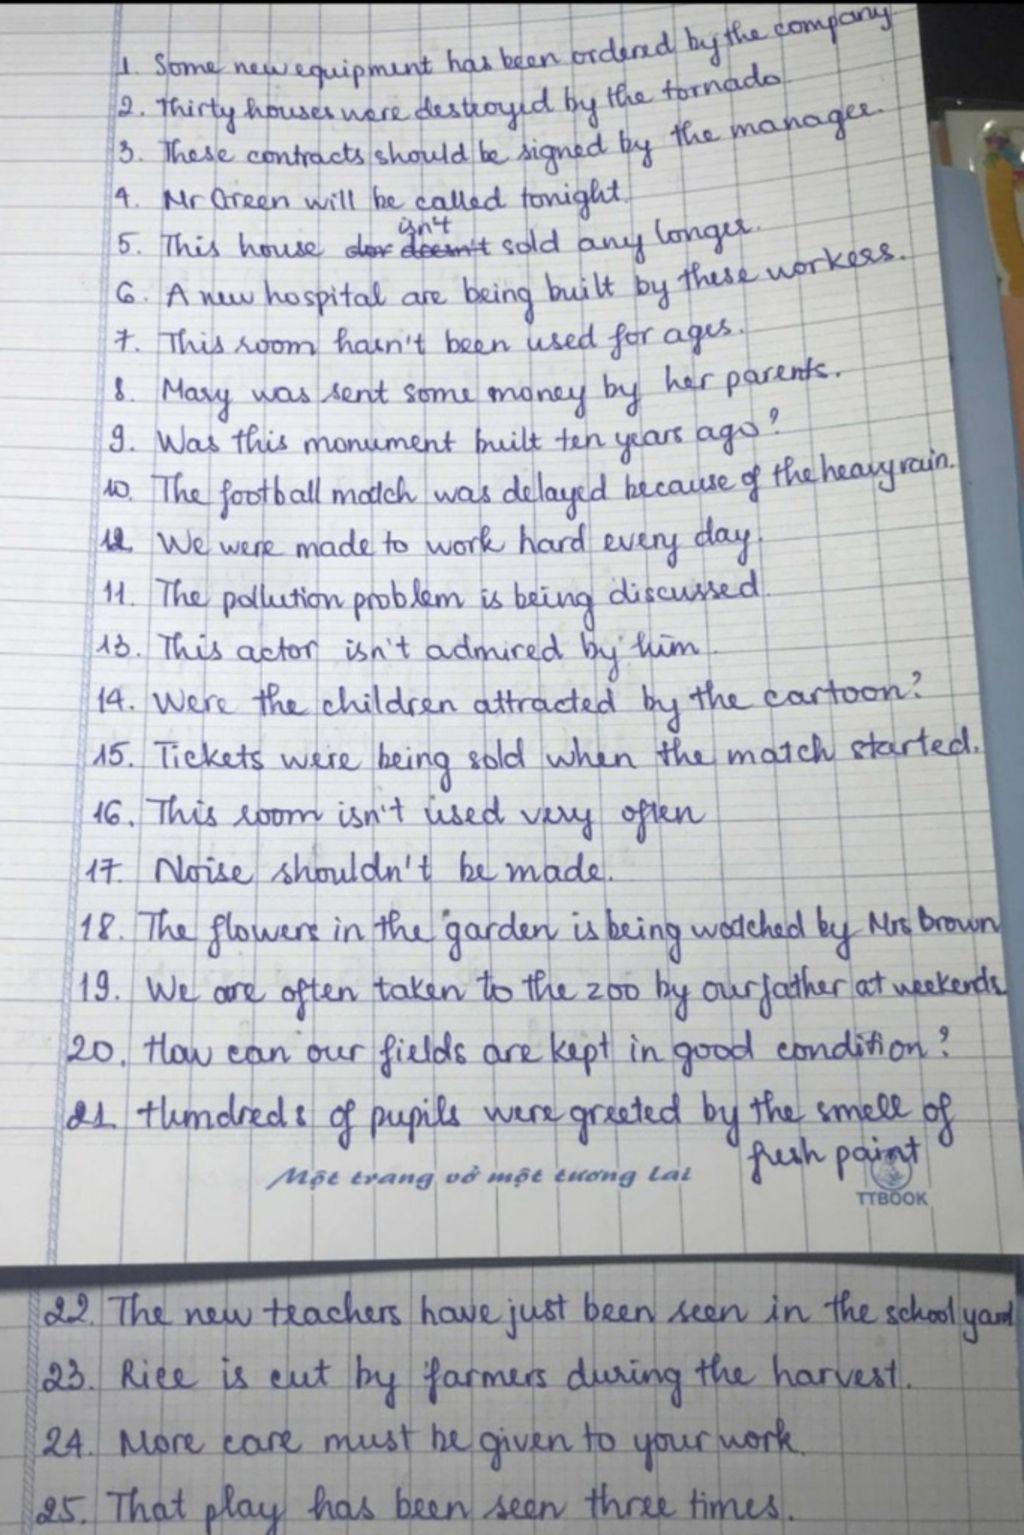 1. Some new equipment has been ordered by the company
2. Thirty houses were destroyed by the tornado
3. These contracts should be signed by the manager.
4. Mr Green will be called tonight.
isn't
5. This house dor doesn't sold any longer.
6. A new hospital are being built by these workers.
7. This room hasn't been used for ages.
8. Mary was sent some money by her parents.
9. Was this monument built ten years ago?
10. The football match was delayed because of the heavy rain.
12. We were made to work hard every day.
11. The pollution problem is being discussed.
13. This actor isn't admired by him.
14. Were the children attracted by the cartoon?
15. Tickets were being sold when the match started.
16. This room isn't used very often
17. Noise shouldn't be made.
18. The flowers in the garden is being watched by Mrs Brown
19. We are often taken to the zoo by our father at weekends.
20. How can our fields are kept in good condition?
21. Hundreds of pupils were greeted by the smell of
fresh paint
Một trang vở một tương lai
TTBOOK
22. The new teachers have just been seen in the school yard
23. Rice is cut by farmers during the harvest.
24. More care must be given to your work.
25. That play has been seen three times.